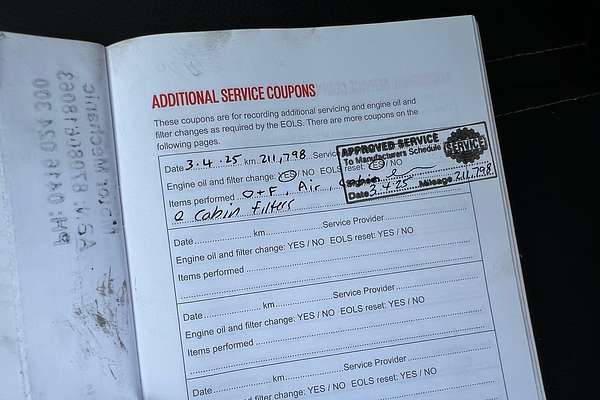 ADDITIONAL SERVICE COUPONS
These coupons are for recording additional servicing and engine oil and
filter changes as required by the EOLS. There are more coupons on the
following pages.
Date 3.4.25 km 211,798 Service
Engine oil and filter change: YES / NO EOLS reset: YES / NO
Items performed O+F, Air,
e cabin filters
APPROVED SERVICE
To Manufacturers Schedule
SERVICE
Date 3.4.25 Mileage 211,798
Date km Service Provider
Engine oil and filter change: YES / NO EOLS reset: YES / NO
Items performed
Date km Service Provider
Engine oil and filter change: YES / NO EOLS reset: YES / NO
Items performed
Date km Service Provider
Engine oil and filter change: YES / NO EOLS reset: YES / NO
Items performed
Motor Mechanic
PH: 0416 024 300